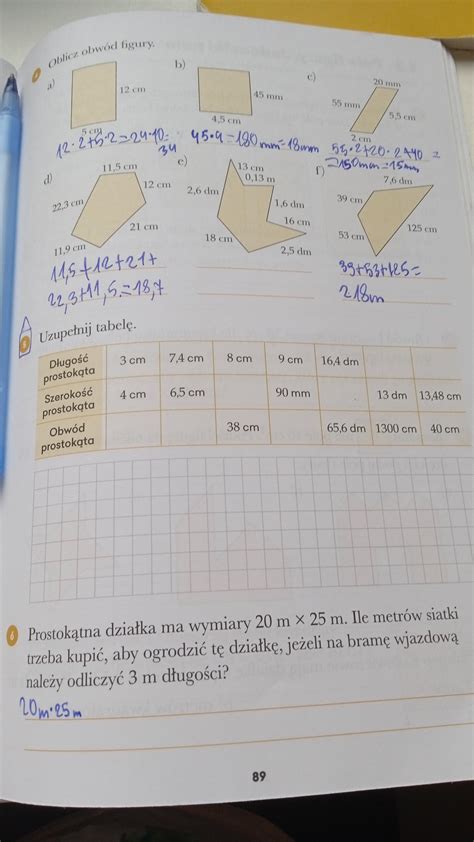 Oblicz obwód figury.
a)
12 cm
5 cm
12·2+5·2=24+10=
34
b)
45 mm
4,5 cm
45·4=180mm=18mm
c)
20 mm
55 mm
5,5 cm
2 cm
55·2+20·2+40=
=150mm=15mm
d)
11,5 cm
12 cm
22,3 cm
21 cm
11,9 cm
11,5+12+21+
22,3+11,5=18,7
e)
13 cm
0,13 m
2,6 dm
1,6 dm
16 cm
18 cm
2,5 dm
f)
7,6 dm
39 cm
125 cm
53 cm
39+53+125=
218m
5 Uzupełnij tabelę.
Długość prostokąta 3 cm 7,4 cm 8 cm 9 cm 16,4 dm
Szerokość prostokąta 4 cm 6,5 cm 90 mm 13 dm 13,48 cm
Obwód prostokąta 38 cm 65,6 dm 1300 cm 40 cm
6 Prostokątna działka ma wymiary 20 m × 25 m. Ile metrów siatki
trzeba kupić, aby ogrodzić tę działkę, jeżeli na bramę wjazdową
należy odliczyć 3 m długości?
20m·25m
89